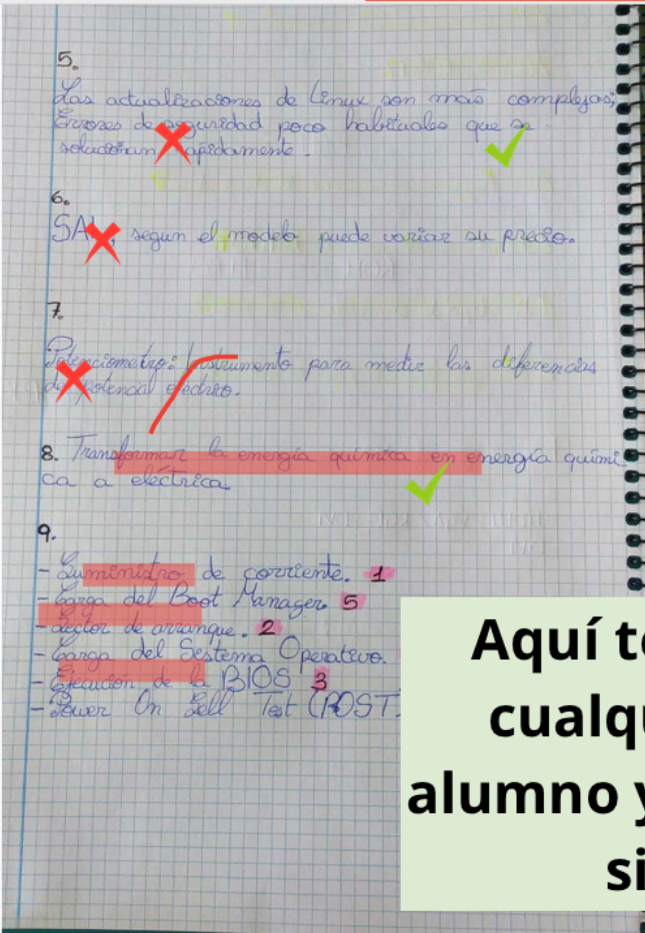 5.
Las actualizaciones de Linux son más complejas;
Errores de seguridad poco habituales que se
solucionan rapidamente.
6.
SAI, segun el modelo puede variar su precio.
7.
Potenciometro: Instrumento para medir las diferencias
de potencial electrico.
8. Transformar la energía química en energía quími
ca a eléctrica.
9.
- Suministro de corriente. 1
- Carga del Boot Manager. 5
- Sector de arranque. 2
- Carga del Sistema Operativo.
- Ejecución de la BIOS 3
- Power On Sell Test (POST)
Aquí t
cualqu
alumno y
si